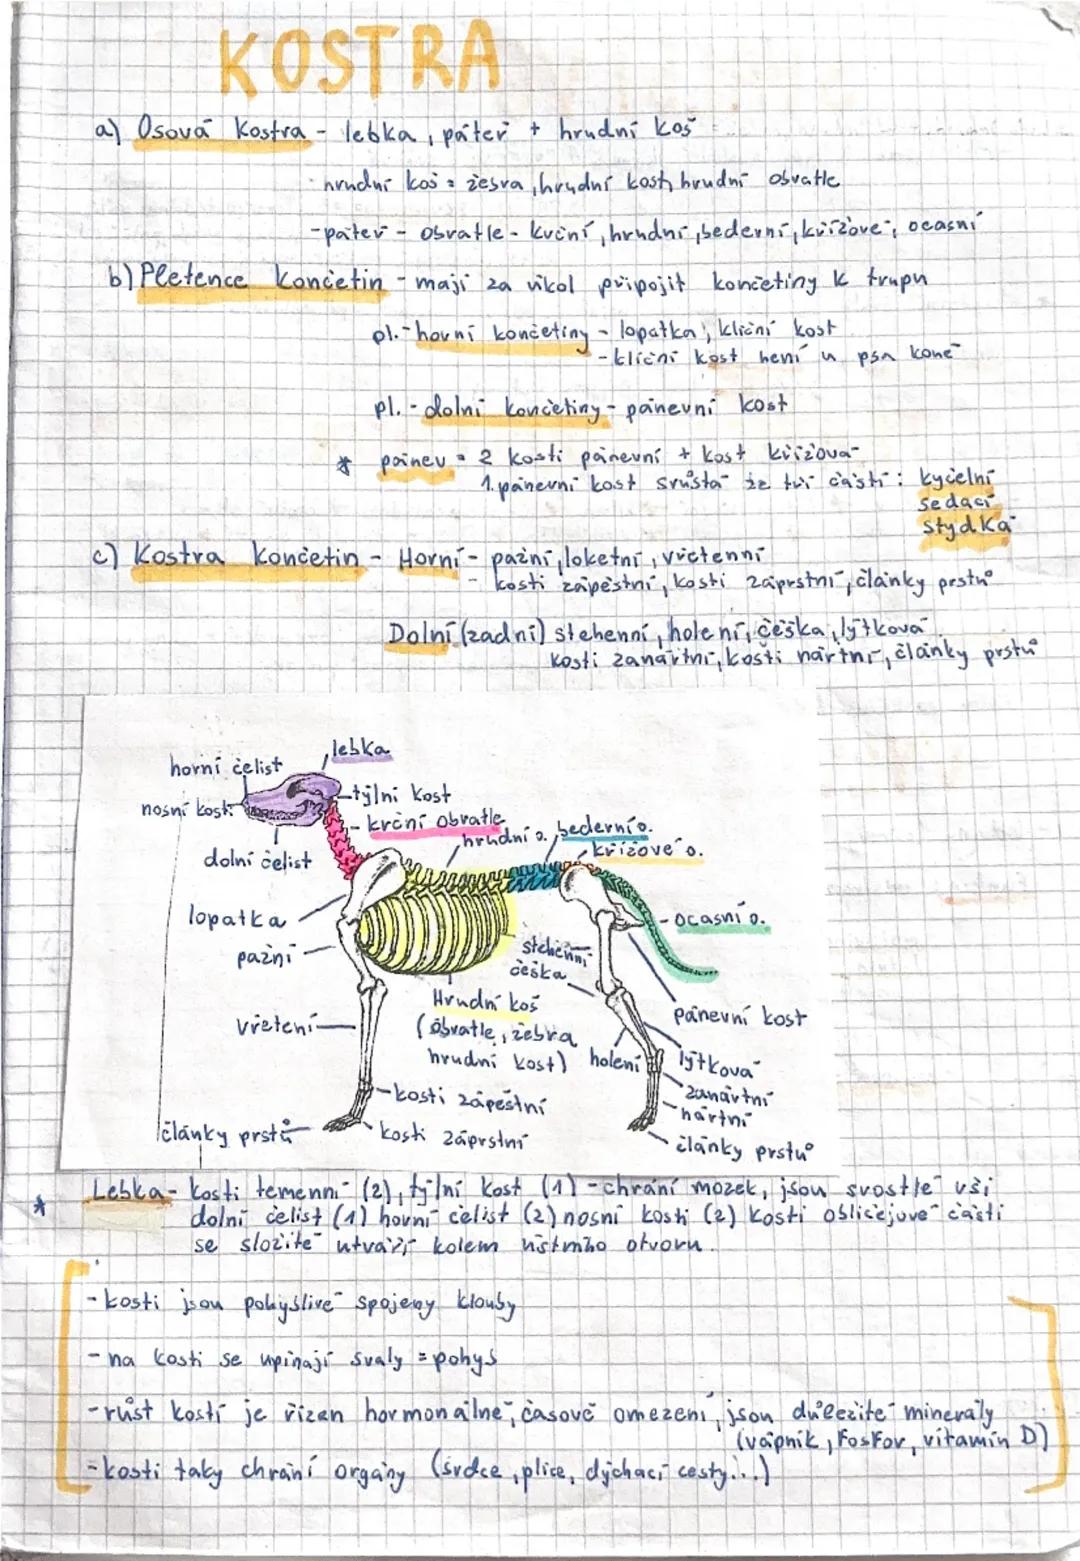 KOSTRA
a) Osová kostra - lebka, páteř + hrudní koš
- hrudní koš = žebra, hrudní kost, hrudní obratle
- páteř - obratle - krční, hrudní, bederní, křížové, ocasní
b) Pletence končetin - mají za úkol připojit končetiny k trupu
pl. - horní končetiny - lopatka, klíční kost
- klíční kost není u psa koně
pl. - dolní končetiny - pánevní kost
* pánev = 2 kosti pánevní + kost křížová
1. pánevní kost srůstá ze tří částí: kyčelní
sedací
stydká
c) Kostra končetin - Horní - pažní, loketní, vřetenní
- kosti zápěstní, kosti záprstní, články prstů
Dolní (zadní) stehenní, holení, čéška, lýtková
kosti zanártní, kosti nártní, články prstů
lebka
horní čelist
týlní kost
nosní kosti
krční obratle
hrudní o. bederní o.
křížové o.
dolní čelist
lopatka
ocasní o.
pažní
stehenní
čéška
Hrudní koš
pánevní kost
vřetení
(obratle, žebra
hrudní kost)
holení
lýtková
zanártní
kosti zápěstní
nártní
články prstů
kosti záprstní
články prstů
* Lebka - kosti temenní (2), týlní kost (1) - chrání mozek, jsou srostlé vši
dolní čelist (1) horní čelist (2) nosní kosti (2) kosti obličejové části
se složitě utváří kolem ústního otvoru.
- kosti jsou pohyblivě spojeny klouby
- na kosti se upínají svaly = pohyb
- růst kostí je řízen hormonálně, časově omezení, jsou důležité minerály
(vápník, fosfor, vitamín D)
- kosti taky chrání orgány (srdce, plíce, dýchací cesty...)